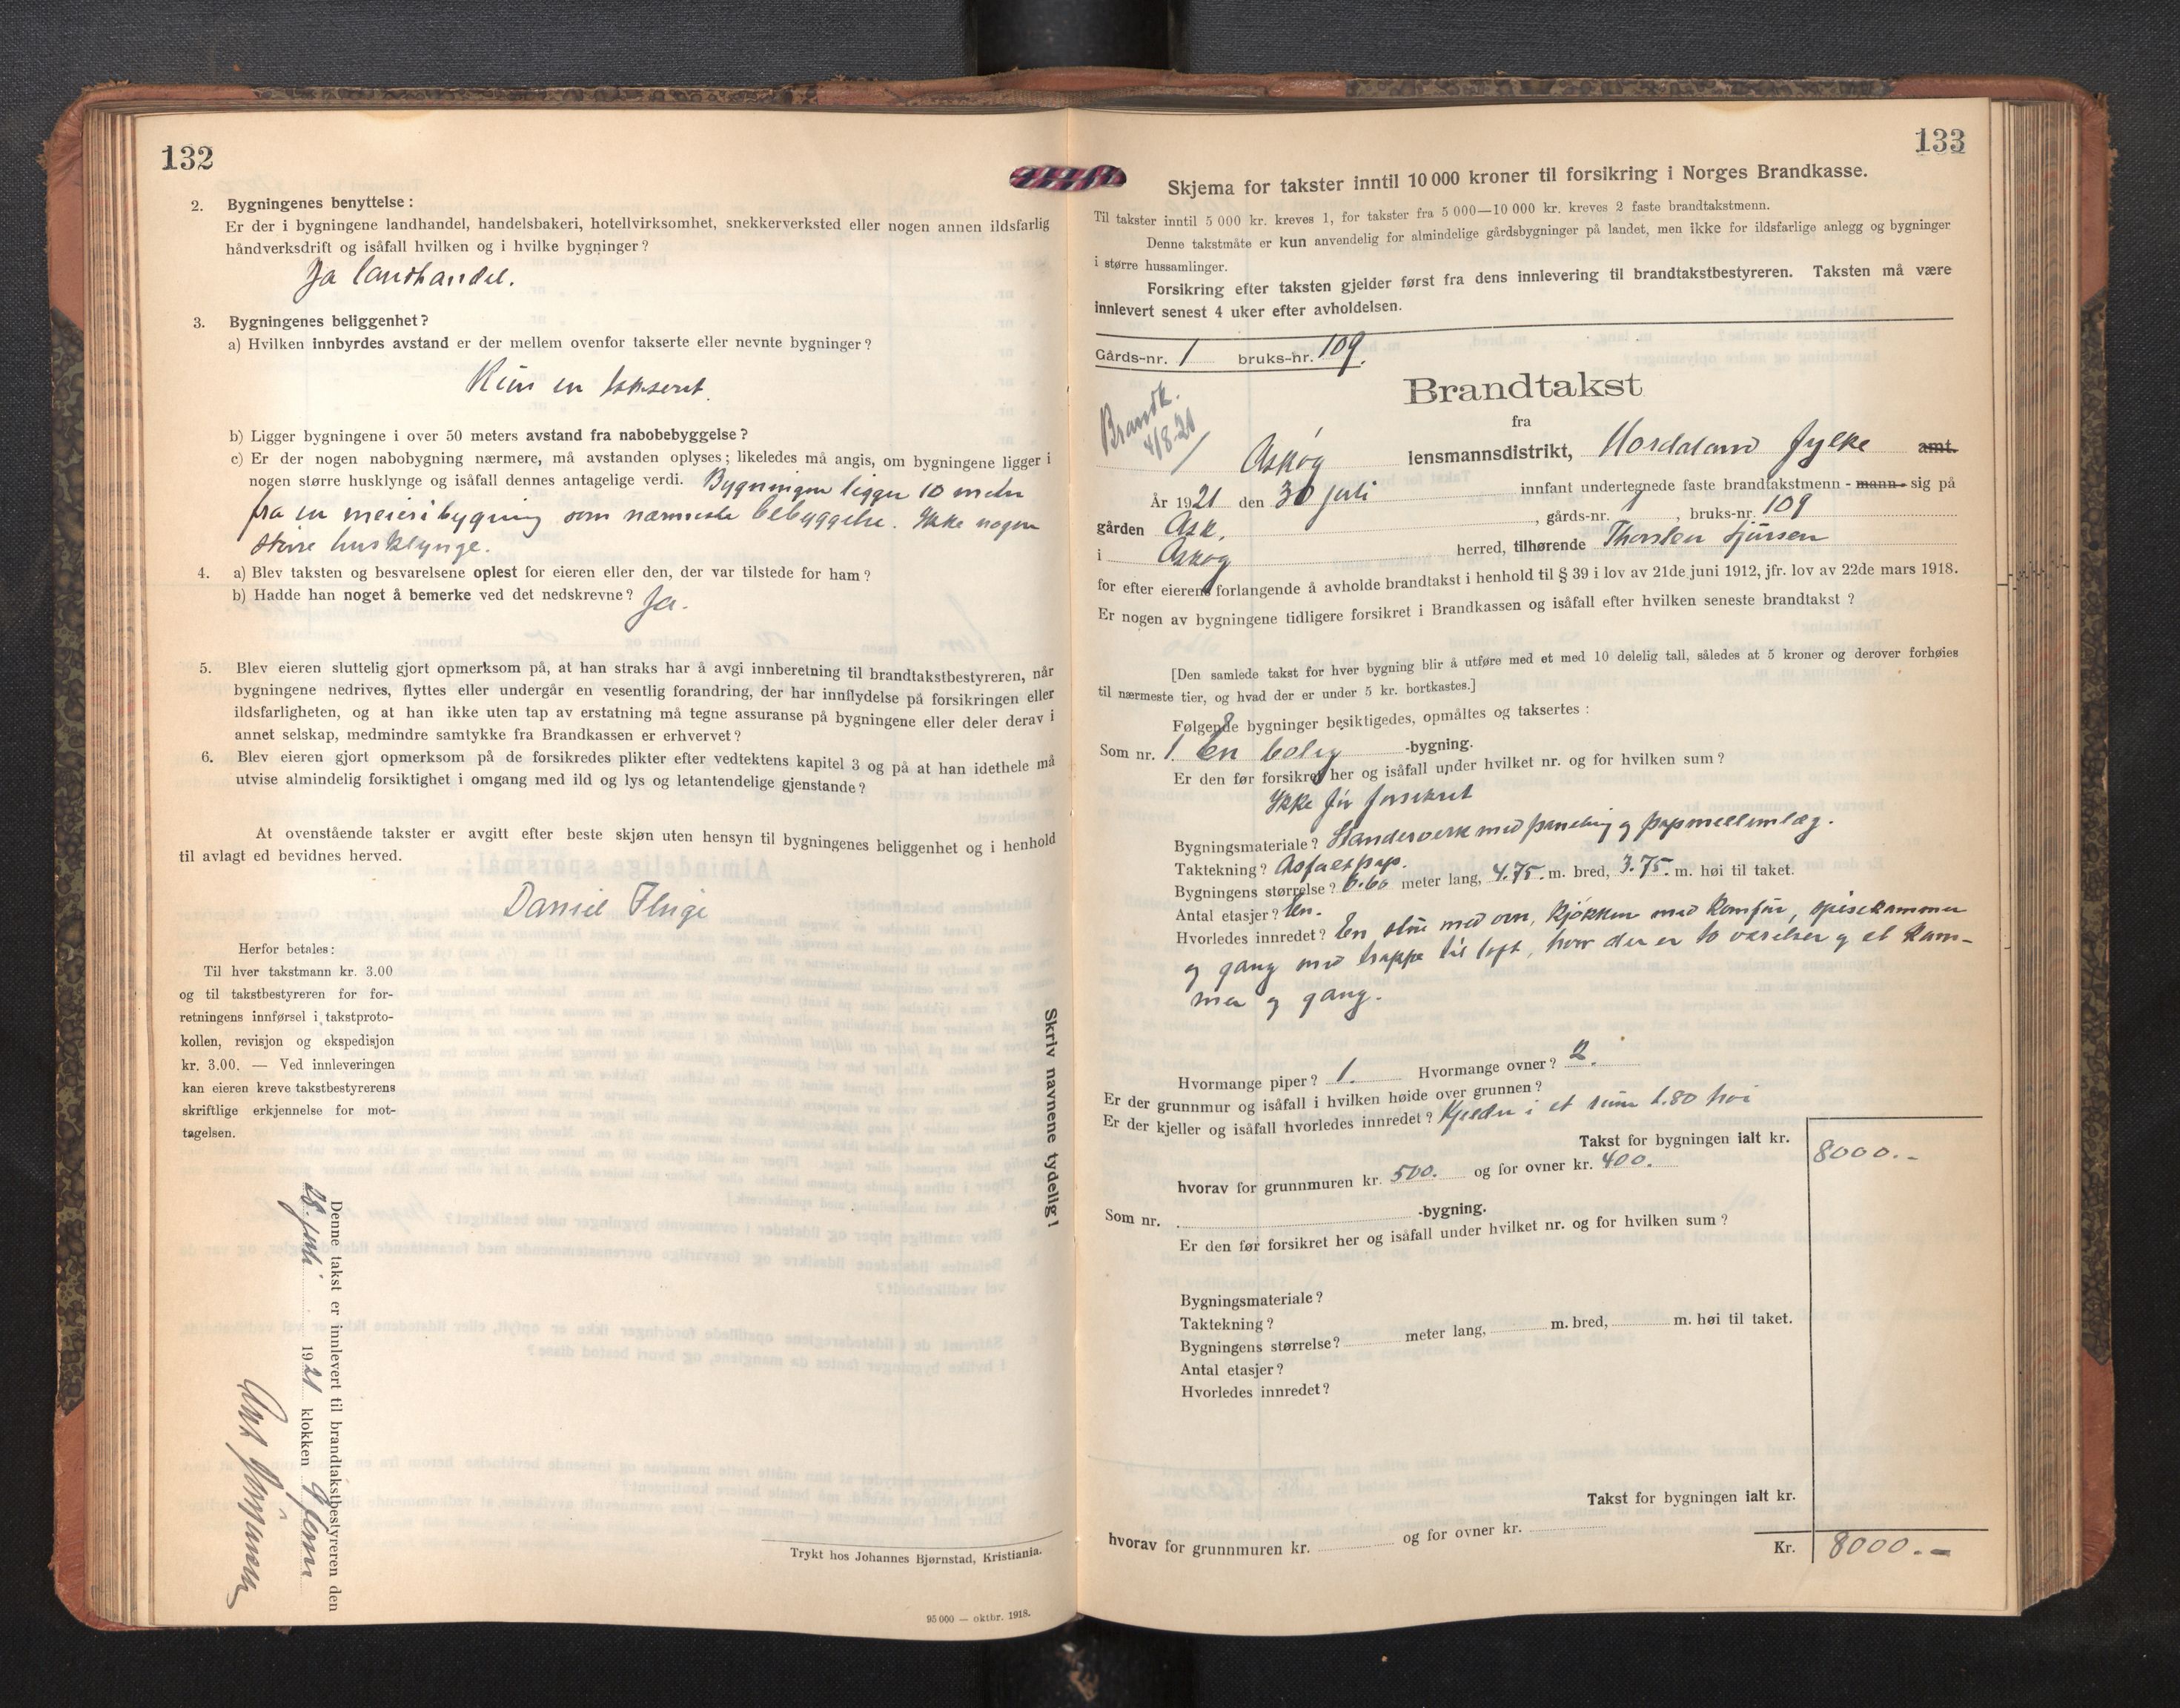 132
2. Bygningenes benyttelse:
Er der i bygningene landhandel, handelsbakeri, hotellvirksomhet, snekkerverksted eller nogen annen ildsfarlig
håndverksdrift og isåfall hvilken og i hvilke bygninger?
Ja landhandel.
3. Bygningenes beliggenhet?
a) Hvilken innbyrdes avstand er der mellem ovenfor takserte eller nevnte bygninger?
Kun en taksert.
b) Ligger bygningene i over 50 meters avstand fra nabobebyggelse?
c) Er der nogen nabobygning nærmere, må avstanden oplyses; likeledes må angis, om bygningene ligger i
nogen større husklynge og isåfall dennes antagelige verdi. Bygningen ligger 10 meter
fra en meieribygning som nærmeste bebyggelse. Ikke nogen
større husklynge.
4. a) Blev taksten og besvarelsene oplest for eieren eller den, der var tilstede for ham?
b) Hadde han noget å bemerke ved det nedskrevne? Ja.
5. Blev eieren sluttelig gjort opmerksom på, at han straks har å avgi innberetning til brandtakstbestyreren, når
bygningene nedrives, flyttes eller undergår en vesentlig forandring, der har innflydelse på forsikringen eller
ildsfarligheten, og at han ikke uten tap av erstatning må tegne assuranse på bygningene eller deler derav i
annet selskap, medmindre samtykke fra Brandkassen er erhvervet?
6. Blev eieren gjort opmerksom på de forsikredes plikter efter vedtektens kapitel 3 og på at han idethele må
utvise almindelig forsiktighet i omgang med ild og lys og letantendelige gjenstande?
At ovenstående takster er avgitt efter beste skjøn uten hensyn til bygningenes beliggenhet og i henhold
til avlagt ed bevidnes herved.
Daniel
Herfor betales:
Til hver takstmann kr. 3.00
og til takstbestyreren for for-
retningens innførsel i takstproto-
kollen, revisjon og ekspedisjon
kr. 3.00. — Ved innleveringen
kan eieren kreve takstbestyrerens
skriftlige erkjennelse for mot-
tagelsen.
Skriv navnene tydelig!
Denne takst er innlevert til brandtakstbestyreren den
28. juli 1921 klokken
Trykt hos Johannes Bjørnstad, Kristiania.
95 000 — oktbr. 1918.
133
Skjema for takster inntil 10 000 kroner til forsikring i Norges Brandkasse.
Til takster inntil 5 000 kr. kreves 1, for takster fra 5 000—10 000 kr. kreves 2 faste brandtakstmenn.
Denne takstmåte er kun anvendelig for almindelige gårdsbygninger på landet, men ikke for ildsfarlige anlegg og bygninger
i større hussamlinger.
Forsikring efter taksten gjelder først fra dens innlevering til brandtakstbestyreren. Taksten må være
innlevert senest 4 uker efter avholdelsen.
Gårds-nr. 1 bruks-nr. 109.
Brandtakst
Brandk.
4/8-21
fra
Askøy lensmannsdistrikt, Hordaland fylke amt.
År 1921 den 30 juli innfant undertegnede faste brandtakstmenn - mann - sig på
gården Ask. , gårds-nr. 1 , bruks-nr. 109
i Askøy herred, tilhørende Thorsten Sjursen
for efter eierens forlangende å avholde brandtakst i henhold til § 39 i lov av 21de juni 1912, jfr. lov av 22de mars 1918.
Er nogen av bygningene tidligere forsikret i Brandkassen og isåfall efter hvilken seneste brandtakst?
[Den samlede takst for hver bygning blir å utføre med et med 10 delelig tall, således at 5 kroner og derover forhøies
til nærmeste tier, og hvad der er under 5 kr. bortkastes.]
Følgende bygninger besiktigedes, opmåltes og taksertes:
Som nr. 1. En bolig -bygning.
Er den før forsikret her og isåfall under hvilket nr. og for hvilken sum?
Ikke før forsikret
Bygningsmateriale? Standerverk med paneling og papmellemlæg.
Taktekning? Asfaltpap.
Bygningens størrelse? 6.60 meter lang, 4.75. m. bred, 3.75. m. høi til taket.
Antal etasjer? En.
Hvorledes innredet? En stue med ovn, kjøkken med komfur, spisekammer
og gang med trappe til loft, hvor der er to værelser og et kam-
mer og gang.
Hvormange piper? 1. Hvormange ovner? 2.
Er der grunnmur og isåfall i hvilken høide over grunnen?
Er der kjeller og isåfall hvorledes innredet? Kjelder i et rum 1.80 høi
Takst for bygningen ialt kr. 8000.-
hvorav for grunnmuren kr. 500. og for ovner kr. 400.
Som nr. -bygning.
Er den før forsikret her og isåfall under hvilket nr. og for hvilken sum?
Bygningsmateriale?
Taktekning?
Bygningens størrelse? meter lang, m. bred, m. høi til taket.
Antal etasjer?
Hvorledes innredet?
Takst for bygningen ialt kr.
hvorav for grunnmuren kr. og for ovner kr.
Kr. 8000.-